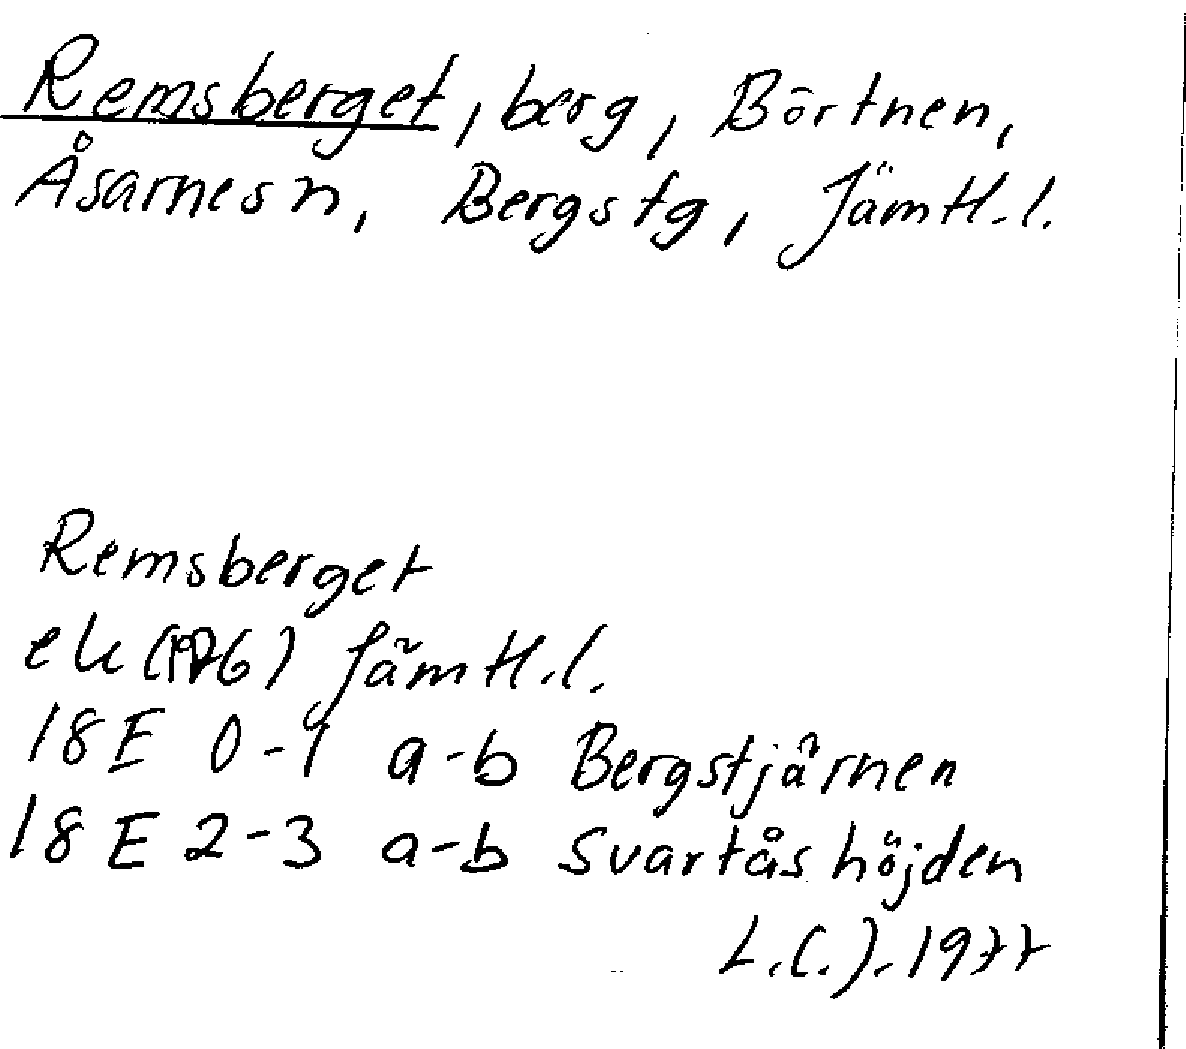 Remsberget, berg, Börtnen,
Åsarnes sn, Bergs tg, Jämtl.l.
Remsberget
ek Jämtl.l.
18E 0-1 a-b Bergstjärnen
18E 2-3 a-b Svartåshöjden
1977